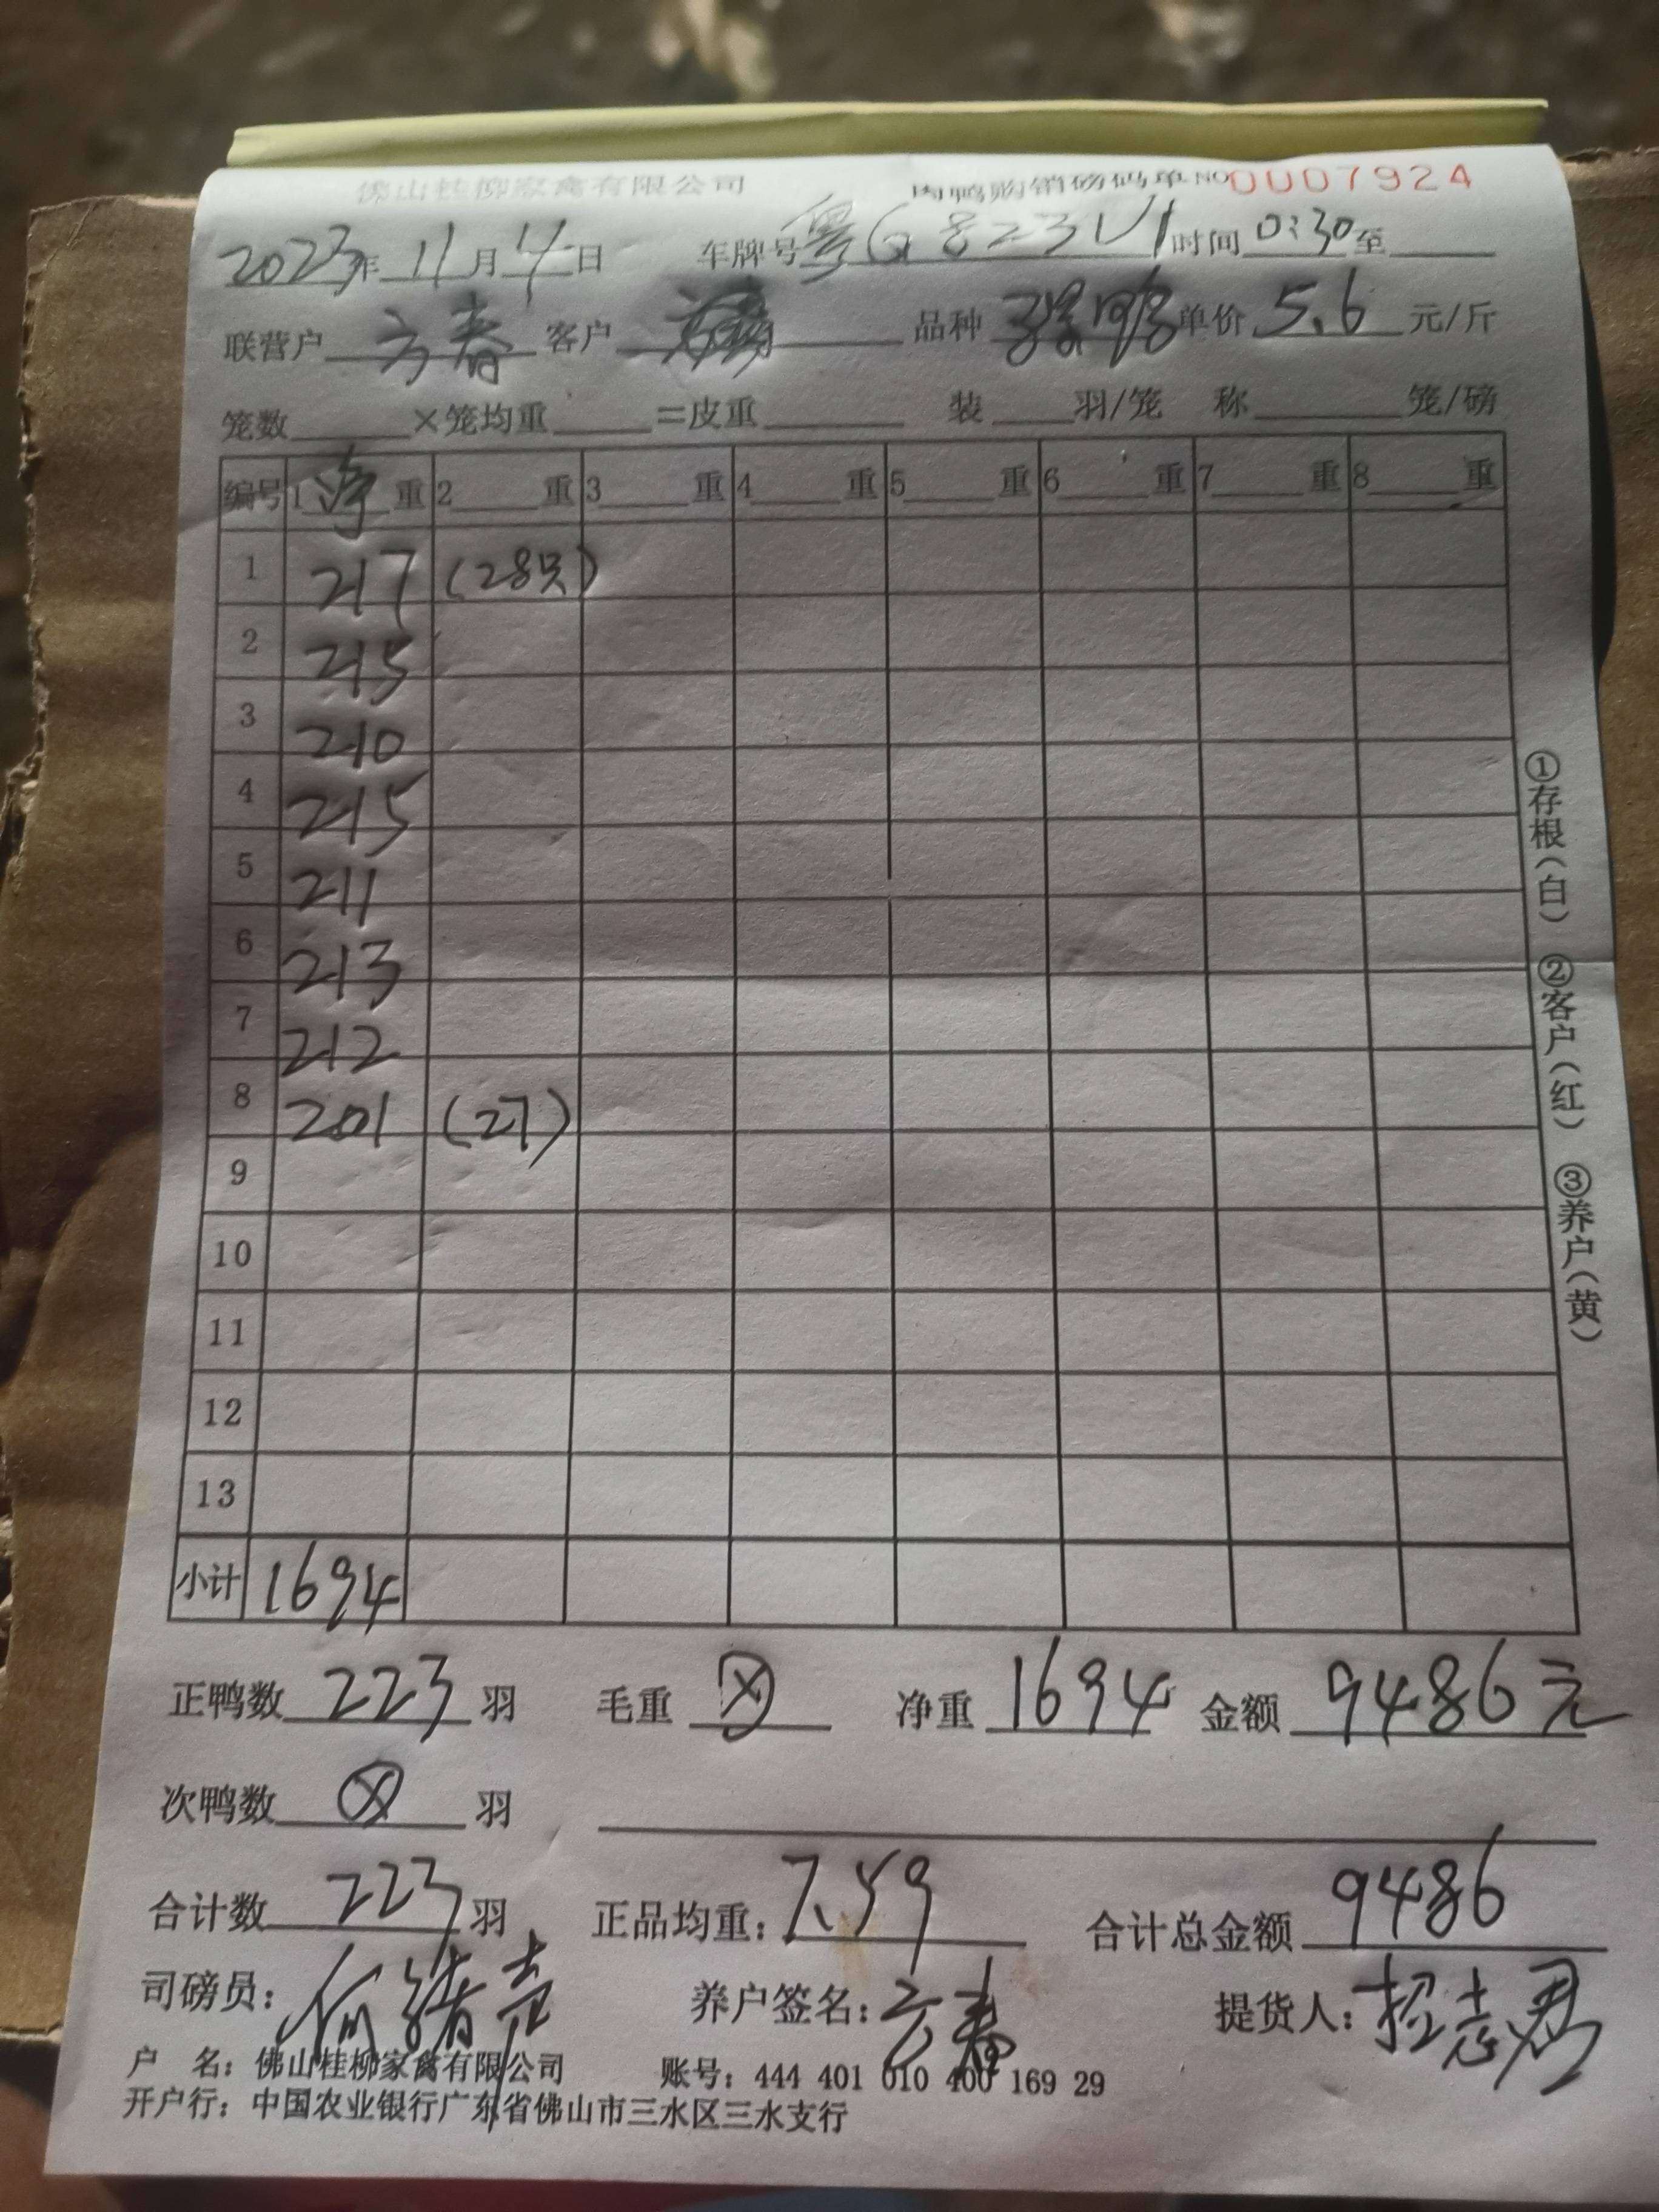 佛山桂柳家禽有限公司 肉鸭购销磅码单 NO 0007924
2023年 11月 4日 车牌号 粤G 823 时间 0:30 至
联营户 春 客户 品种 鸭 单价 5.6 元/斤
笼数 ×笼均重 =皮重 装 羽/笼 称 笼/磅
编号 1 净 重 2 重 3 重 4 重 5 重 6 重 7 重 8 重
1 217 (28只)
2 215
3 210
4 215
5 211
6 213
7 212
8 201 (27)
9
10
11
12
13
小计 1694
正鸭数 223 羽 毛重 ⊗ 净重 1694 金额 9486元
次鸭数 ⊗ 羽
合计数 223 羽 正品均重: 7.59 合计总金额 9486
司磅员: 何 养户签名: 春 提货人: 招志君
户 名: 佛山桂柳家禽有限公司 账号: 444 401 010 400 169 29
开户行: 中国农业银行广东省佛山市三水区三水支行
①存根(白) ②客户(红) ③养户(黄)